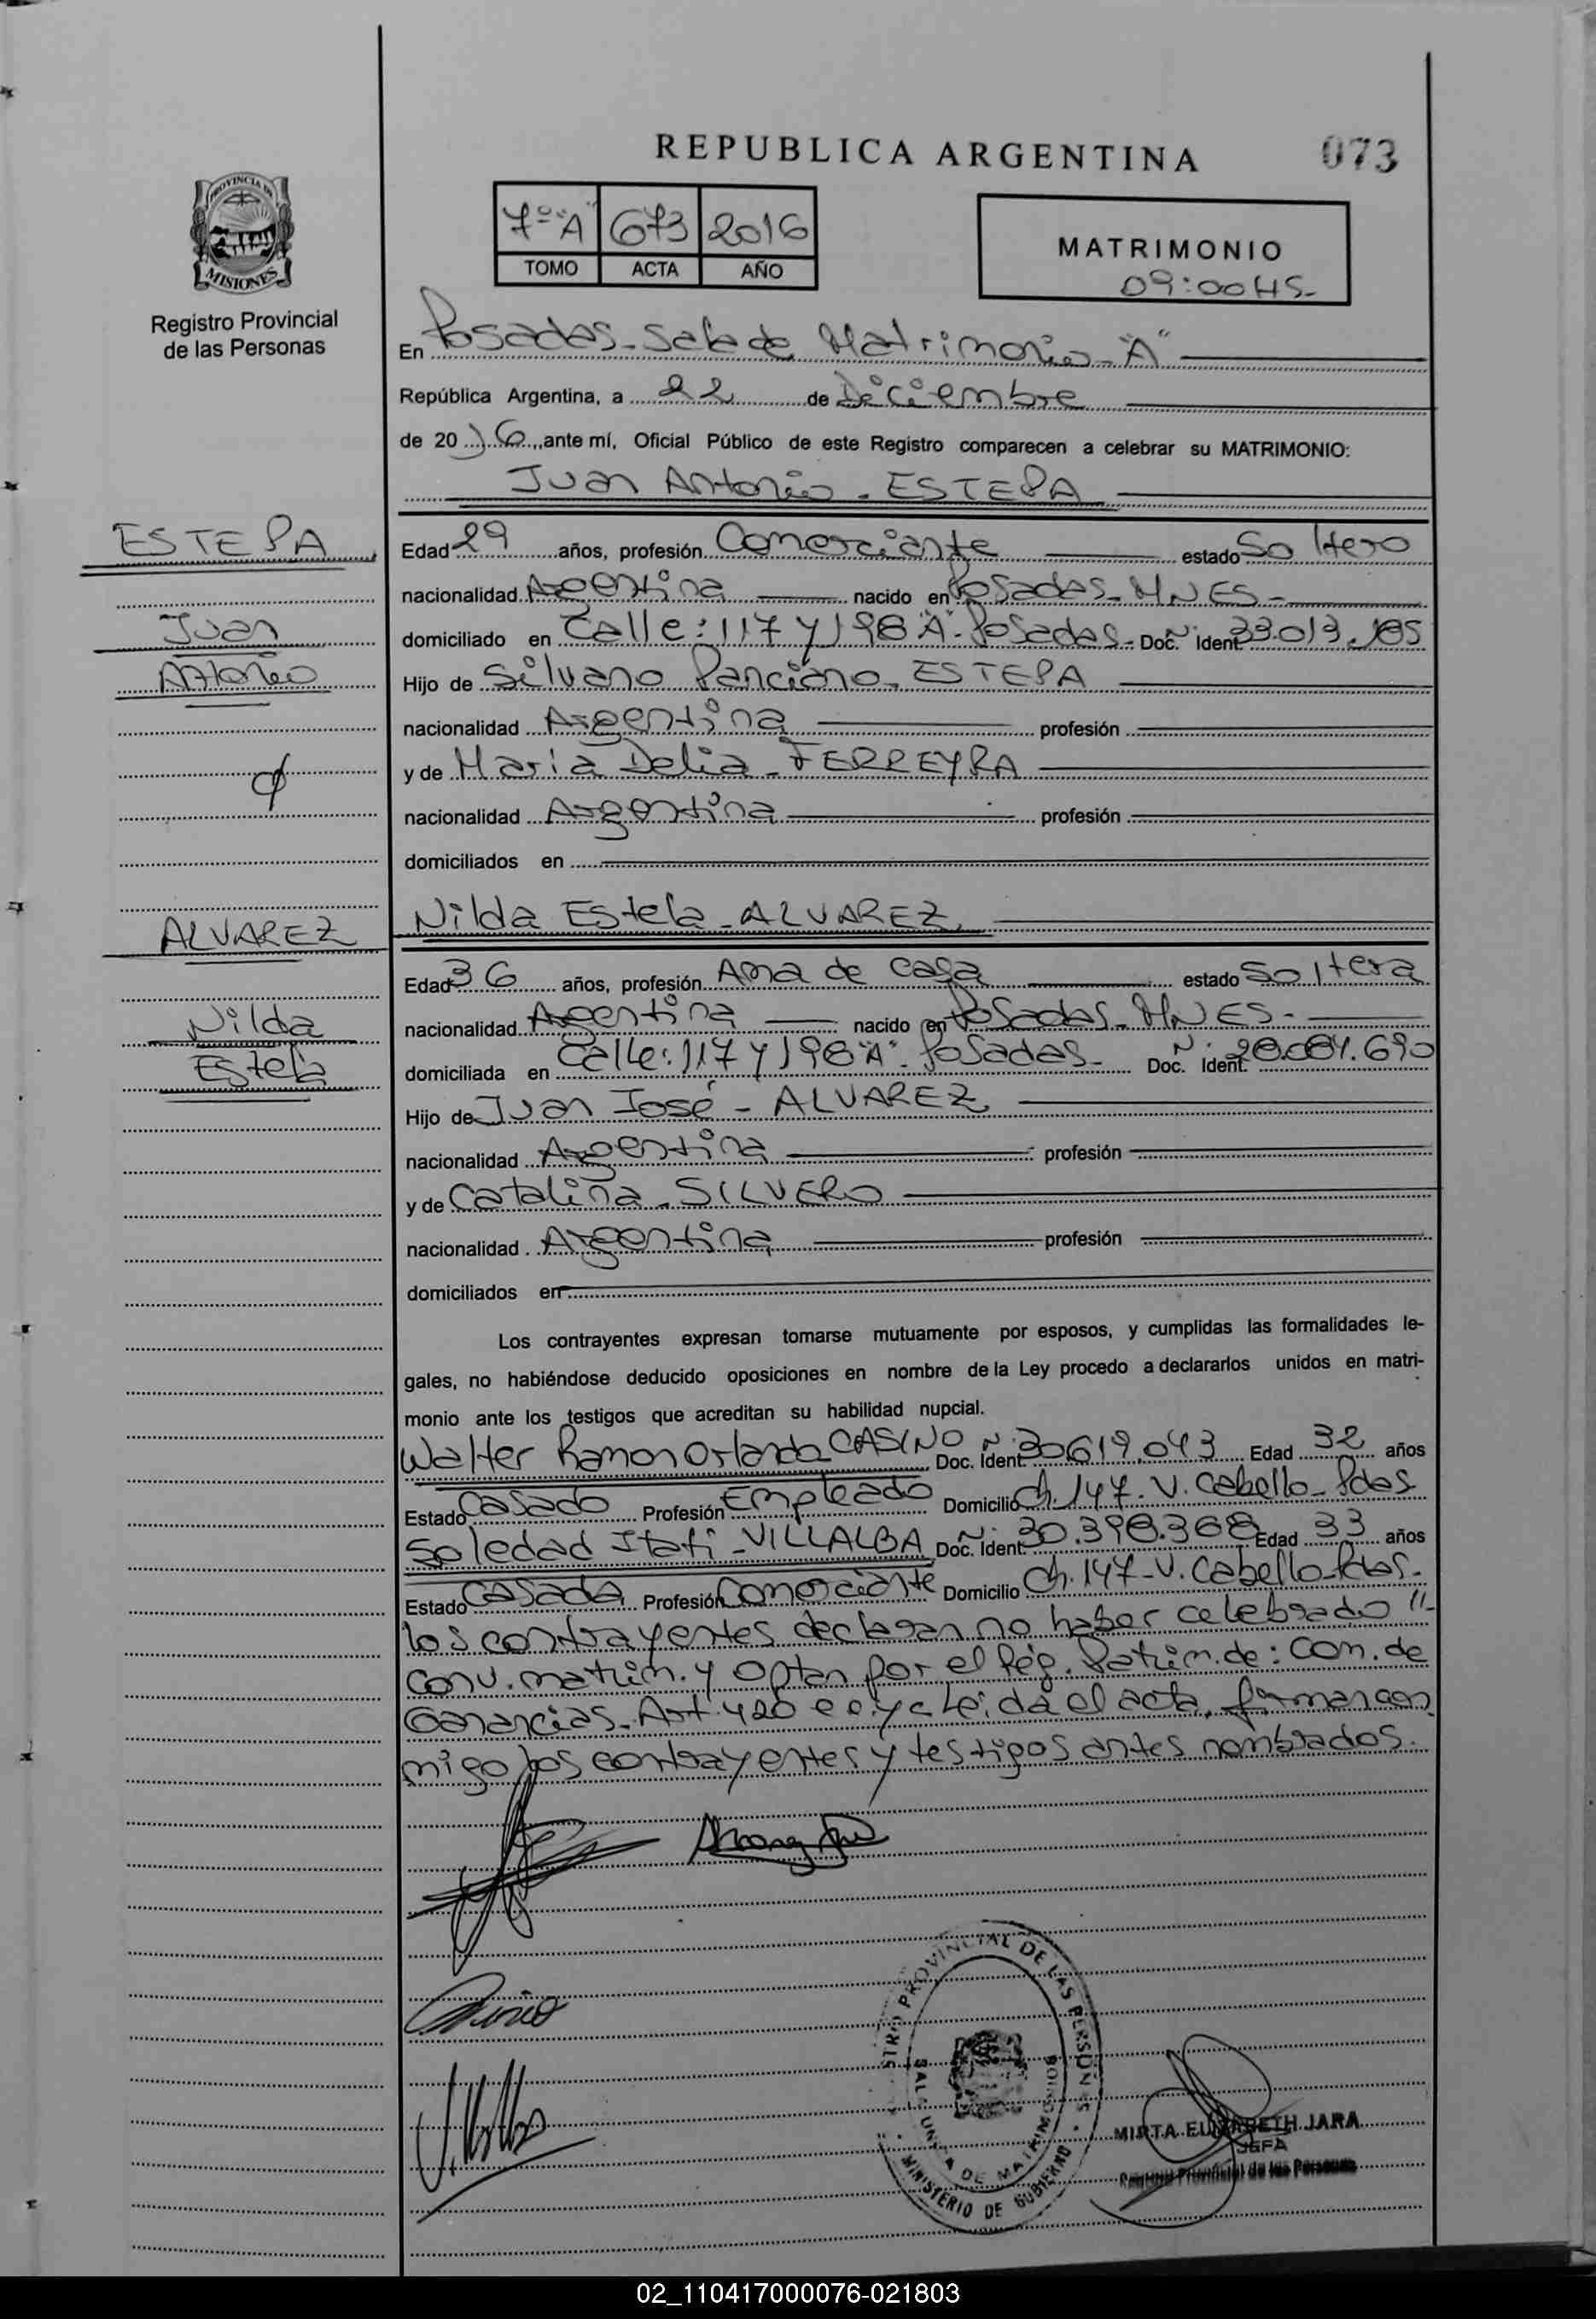 REPUBLICA ARGENTINA
073
PROVINCIA DE
MISIONES
Registro Provincial
de las Personas
7º "A" 673 2016
TOMO ACTA AÑO
MATRIMONIO
09:00 HS.
En Posadas - Sala de Matrimonio - "A"
República Argentina, a 22 de Diciembre
de 2016, ante mí, Oficial Público de este Registro comparecen a celebrar su MATRIMONIO:
Juan Antonio - ESTEPA
ESTEPA
Juan
Antonio
Edad 29 años, profesión Comerciante estado Soltero
nacionalidad Argentina nacido en Posadas - MNES -
domiciliado en Calle: 117 y 198 "A" - Posadas - Doc. Nº Ident. 33.013.185
Hijo de Silvano Panciano - ESTEPA
nacionalidad Argentina profesión
y de Maria Delia - FERREYRA
nacionalidad Argentina profesión
domiciliados en
ALVAREZ
Nilda
Estela
Nilda Estela - ALVAREZ
Edad 36 años, profesión Ama de casa estado Soltera
nacionalidad Argentina nacido en Posadas - MNES -
domiciliada en Calle: 117 y 198 "A" - Posadas - Doc. Nº Ident. 28.084.690
Hijo de Juan José - ALVAREZ
nacionalidad Argentina profesión
y de Catalina - SILVERO
nacionalidad Argentina profesión
domiciliados en
Los contrayentes expresan tomarse mutuamente por esposos, y cumplidas las formalidades le-
gales, no habiéndose deducido oposiciones en nombre de la Ley procedo a declararlos unidos en matri-
monio ante los testigos que acreditan su habilidad nupcial.
Walter Ramon Orlando CASINO Doc. Nº Ident. 30619.043 Edad 32 años
Estado Casado Profesión Empleado Domicilio Ch. 147 - V. Cabello - Pdas
Soledad Itati - VILLALBA Doc. Nº Ident. 30.398.368 Edad 33 años
Estado Casada Profesión Comerciante Domicilio Ch. 147 - V. Cabello - Pdas.
los contrayentes declaran no haber celebrado //-
conv. matrim. y optan por el Rég. Patrim. de: Com. de
Ganancias - Art. 420 c c. y c Leida el acta, firman con
migo los contrayentes y testigos antes nombrados.
STRO PROVINCIAL DE LAS PERSONAS
MINISTERIO DE GOBIERNO
DE MATRIMONIOS
MIRTA ELIZABETH JARA
JEFA
Registro Provincial de las Personas
02_110417000076-021803